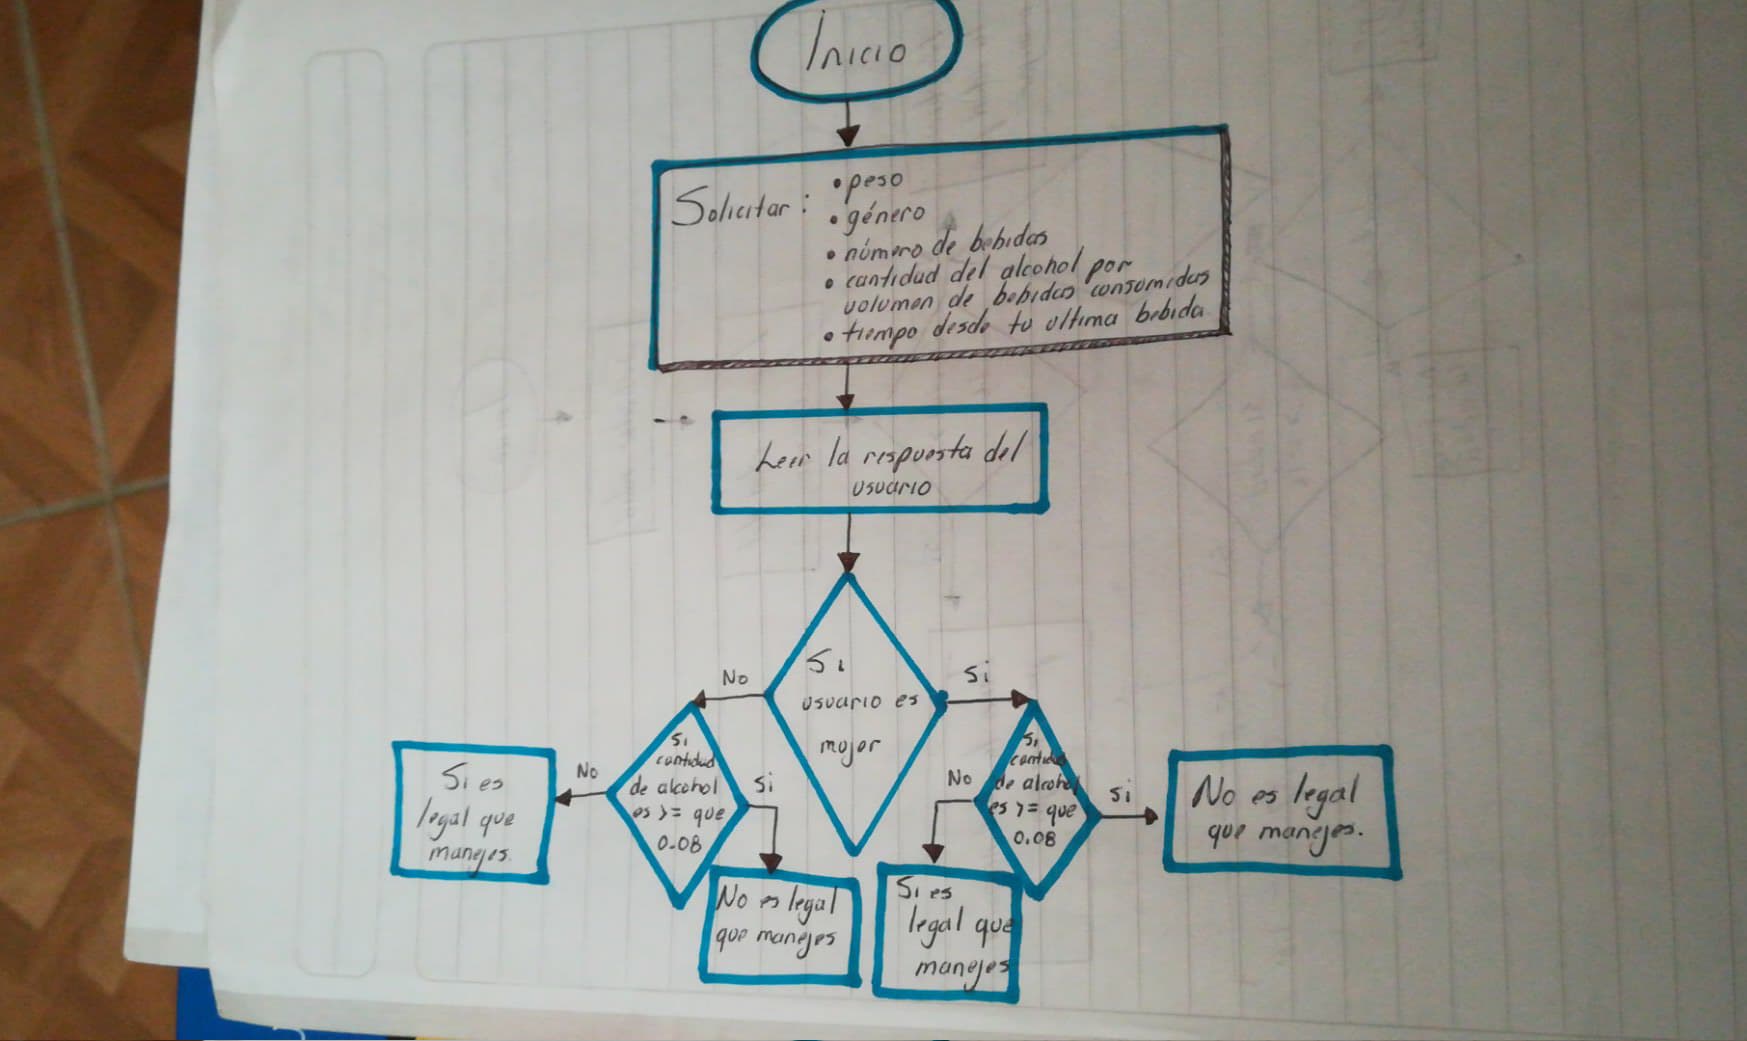 Inicio
Solicitar:
• peso
• género
• número de bebidas
• cantidad del alcohol por
volumen de bebidas consumidas
• tiempo desde tu ultima bebida
Leer la respuesta del
usuario
Si
usuario es
mujer
No
Si
Si
cantidad
de alcohol
es >= que
0.08
No
Si
Si es
legal que
manejes.
No es legal
que manejes
Si
cantidad
de alcohol
es >= que
0.08
No
Si
Si es
legal que
manejes
No es legal
que manejes.